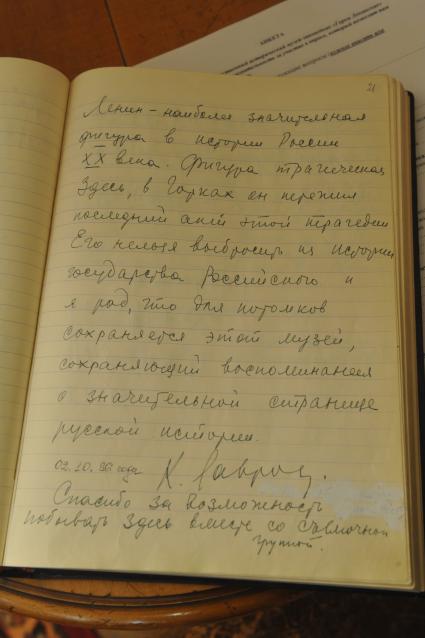 АНКЕТА
21
Ленин - наиболее значительная
фигура в истории России
XX века. Фигура трагическая
Здесь, в Горках он пережил
последний акт этой трагедии
Его нельзя выбросить из истории
государства Российского и
я рад, что для потомков
сохраняется этот музей,
сохраняющий воспоминания
о значительной странице
русской истории.
02.10.96 года К. Лавров.
Спасибо за возможность
побывать здесь вместе со съемочной
группой.